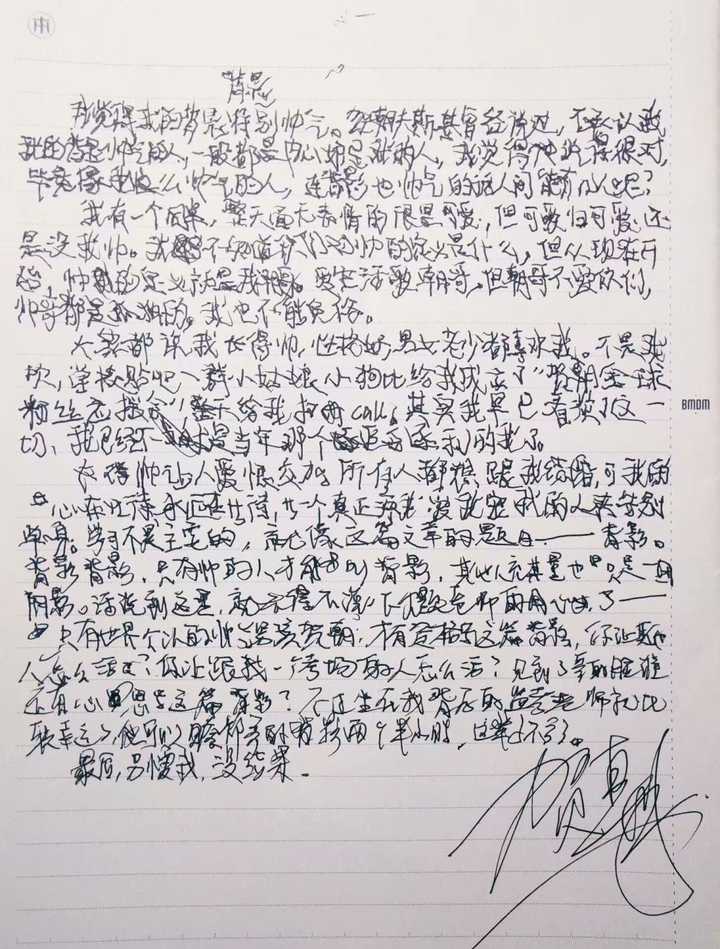 背影
我觉得我的背影特别帅气。贺朝夫斯基曾经说过,不承认我
我的背影帅气的人,一般都是内心妒忌我的人,我觉得他说得很对,
毕竟像我这么帅气的人,连背影也帅气的话人间能有几人呢?
我有一个同桌,整天面无表情的很是可爱,但可爱归可爱,还
是没我帅。我不知道你们对帅的定义是什么,但从现在开
始,帅的定义就是我。爱生活爱朝哥,但朝哥不爱你们,
帅哥都是孤独的,我也不能免俗。
大家都说我长得帅,性格好,男女老少都喜欢我。不是我
吹,学校贴吧一群小姑娘、小狗比给我成立了“贺朝全球
粉丝后援会”整天给我打call。其实我早已看淡了这一
切,我已经不是当年那个的我了。
长得帅让人爱恨交加,所有人都想跟我结婚,可我的
心在等待永远在等待,一个真正
单身。学习不是主要的,就像这篇文章的题目——背影。
背影背影,只有帅的人才能叫背影,其他人充其量也只是一团
阴影。话说到这里,就不得不说一下出题老师的用心了——
只有世界公认的帅哥贺朝,才有资格写这篇背影,你让其他
人怎么活?你让跟我一个考场的人怎么活?见到了我的脸谁
还有心思写这篇背影?不过坐在我背后的监考老师就比
较幸运了,他可以瞻仰我的背影两个半小时,这辈子不亏。
最后,别惯我,没结果。
贺朝
BMDM